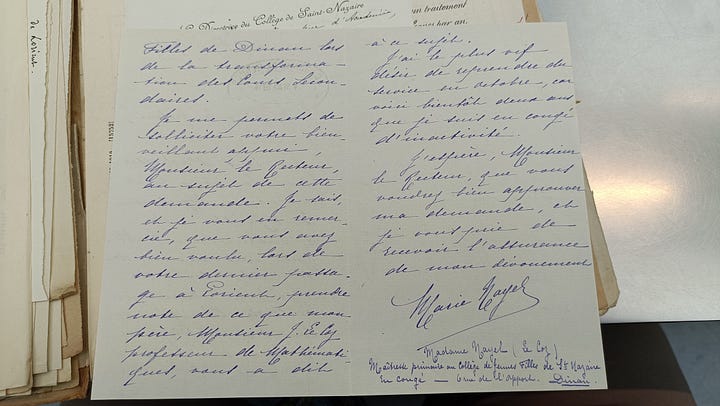 de Lorient.
Directrice du Collège de Saint-Nazaire
d'Académie
son traitement
par an.
Filles de Dinan lors
de la transforma-
tion des Cours Secon-
daires.
Je me permets de
solliciter votre bien-
veillant appui,
Monsieur le Recteur,
au sujet de cette
demande. Je sais,
et je vous en remer-
cie, que vous avez
bien voulu, lors de
votre dernier passa-
ge à Lorient, prendre
note de ce que mon
père, Monsieur J. Le Coz
professeur de Mathémati-
ques, vous a dit
à ce sujet.
J'ai le plus vif
désir de reprendre du
service en octobre, car
voici bientôt deux ans
que je suis en congé
d'inactivité.
J'espère, Monsieur
le Recteur, que vous
voudrez bien approuver
ma demande, et
je vous prie de
recevoir l'assurance
de mon dévouement
Marie Nayel
Madame Nayel (Le Coz)
Maîtresse primaire au Collège de Jeunes Filles de St Nazaire
En congé — 6 rue de l'apport. Dinan.